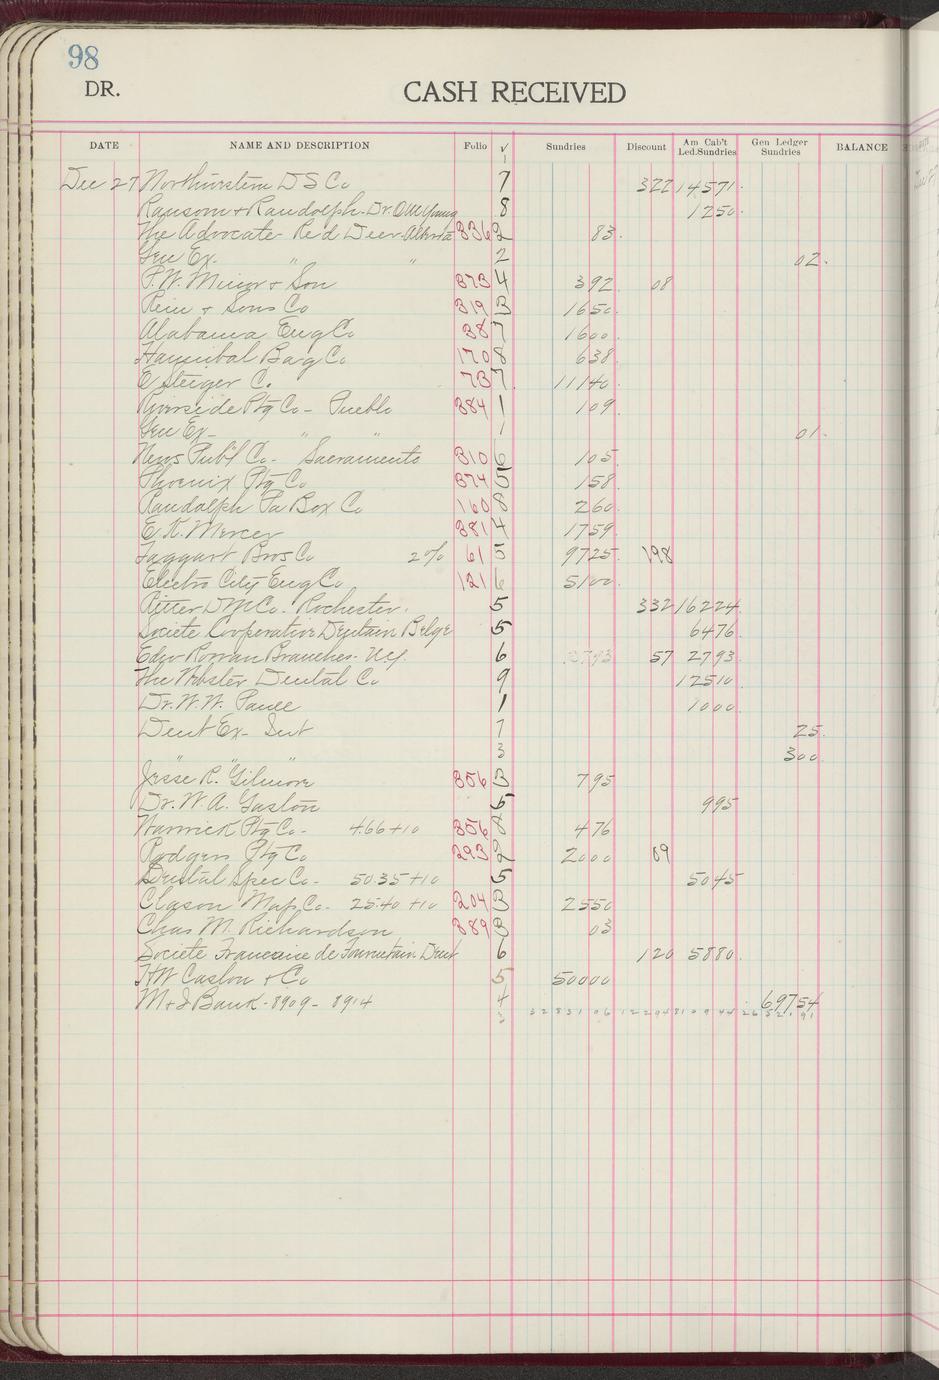 98
DR. CASH RECEIVED
DATE NAME AND DESCRIPTION Folio √ Sundries Discount Am Cab't Led.Sundries Gen Ledger Sundries BALANCE
1
Dec 27 Northwestern D S Co 7 322 14571
Ransom & Randolph - Dr. O M Young 8 1250
The Advocate Red Deer Alberta 336 2 83
Gen Ex. " " 2 02
P. W. Minor & Son 373 4 392 08
Rein & Sons Co 319 3 1650
Alabama Eng Co 38 7 1600
Hannibal Bag Co 170 8 638
E Steiger C. 73 7 11140
Riverside Ptg Co - Pueblo 384 1 109
Gen Ex - " " 1 01
News Publ Co - Sacramento 310 6 105
Phoenix Ptg Co 374 5 158
Randolph Pa Box Co 160 8 260
E. K. Mercer 381 4 1759
Taggart Bros Co 2% 61 5 9725 198
Electro City Eng Co 121 6 5100
Ritter D M Co - Rochester 5 332 16224
Societe Cooperative Dentain Belge 5 6476
Edw Rowan Branches - N.Y. 6 2793 57 2793
The Webster Dental Co 9 12510
Dr. W. W. 1 1000
Dent Ex - 7 25
" " 3 300
Jesse R. Gilmore 306 3 795
Dr. W. A. Gaston 5 995
Warwick Ptg Co - 4.66 + 10 356 8 476
Rodgers Ptg Co 293 2 2000 09
Dental Spec Co - 50.35 + 10 5 5045
Clason Map Co - 25.40 + 10 204 3 2550
Chas M. Richardson 389 3 03
Societe Francaise de Fournitain Dent 6 120 5880
H W Caslon & Co 5 50000
M & J Bank - 8909 - 8914 4 69754
3 32831 06 12294 8109 44 2652 91